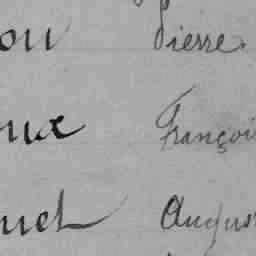 ou Pierre.
ux Françoi
uet Augus